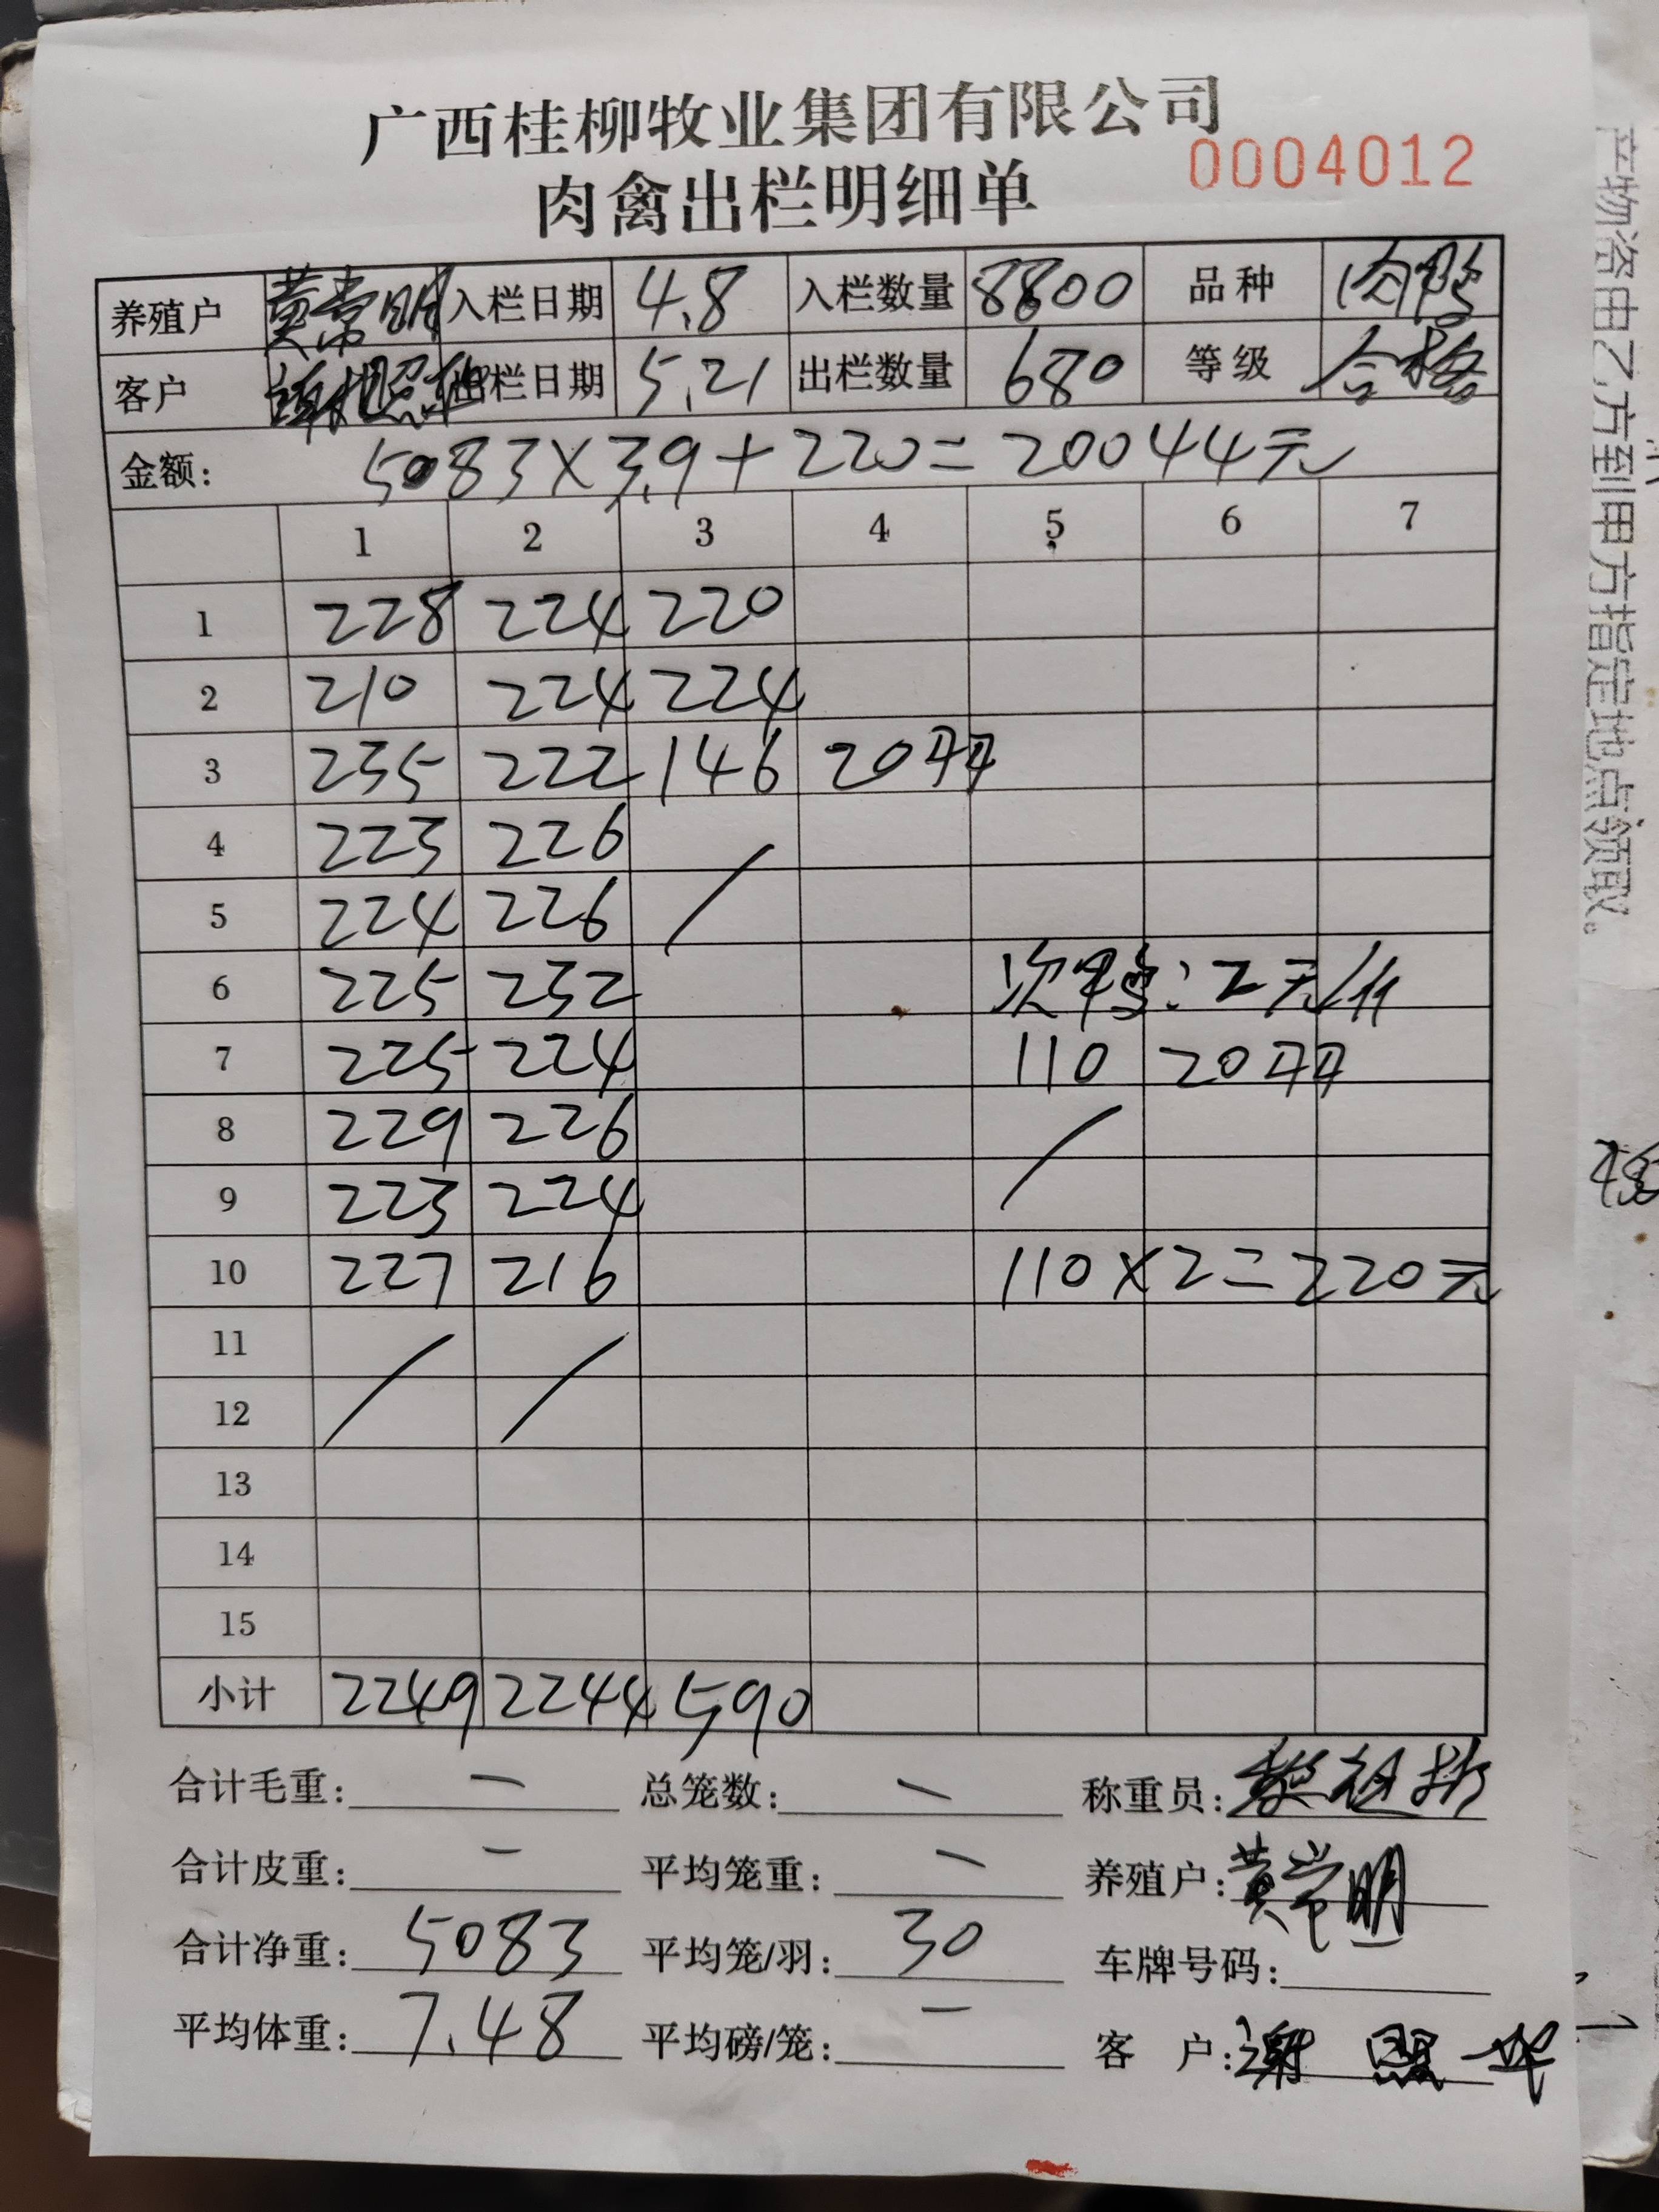 广西桂柳牧业集团有限公司
0004012
肉禽出栏明细单
养殖户 黄常明 入栏日期 4.8 入栏数量 8800 品种 肉鸭
客户 谢照华 出栏日期 5.21 出栏数量 680 等级 合格
金额: 5083×3.9+220=20044元
1 2 3 4 5 6 7
1 228 224 220
2 210 224 224
3 235 222 146 20羽
4 223 226
5 224 226
6 225 232 次鸭:2元/斤
7 225 224 110 20羽
8 229 226
9 223 224
10 227 216 110×2=220元
11
12
13
14
15
小计 2249 2244 590
合计毛重: — 总笼数: — 称重员:
合计皮重: — 平均笼重: — 养殖户: 黄常明
合计净重: 5083 平均笼/羽: 30 车牌号码:
平均体重: 7.48 平均磅/笼: — 客 户: 谢照华
产物资由乙方到甲方指定地点领取。